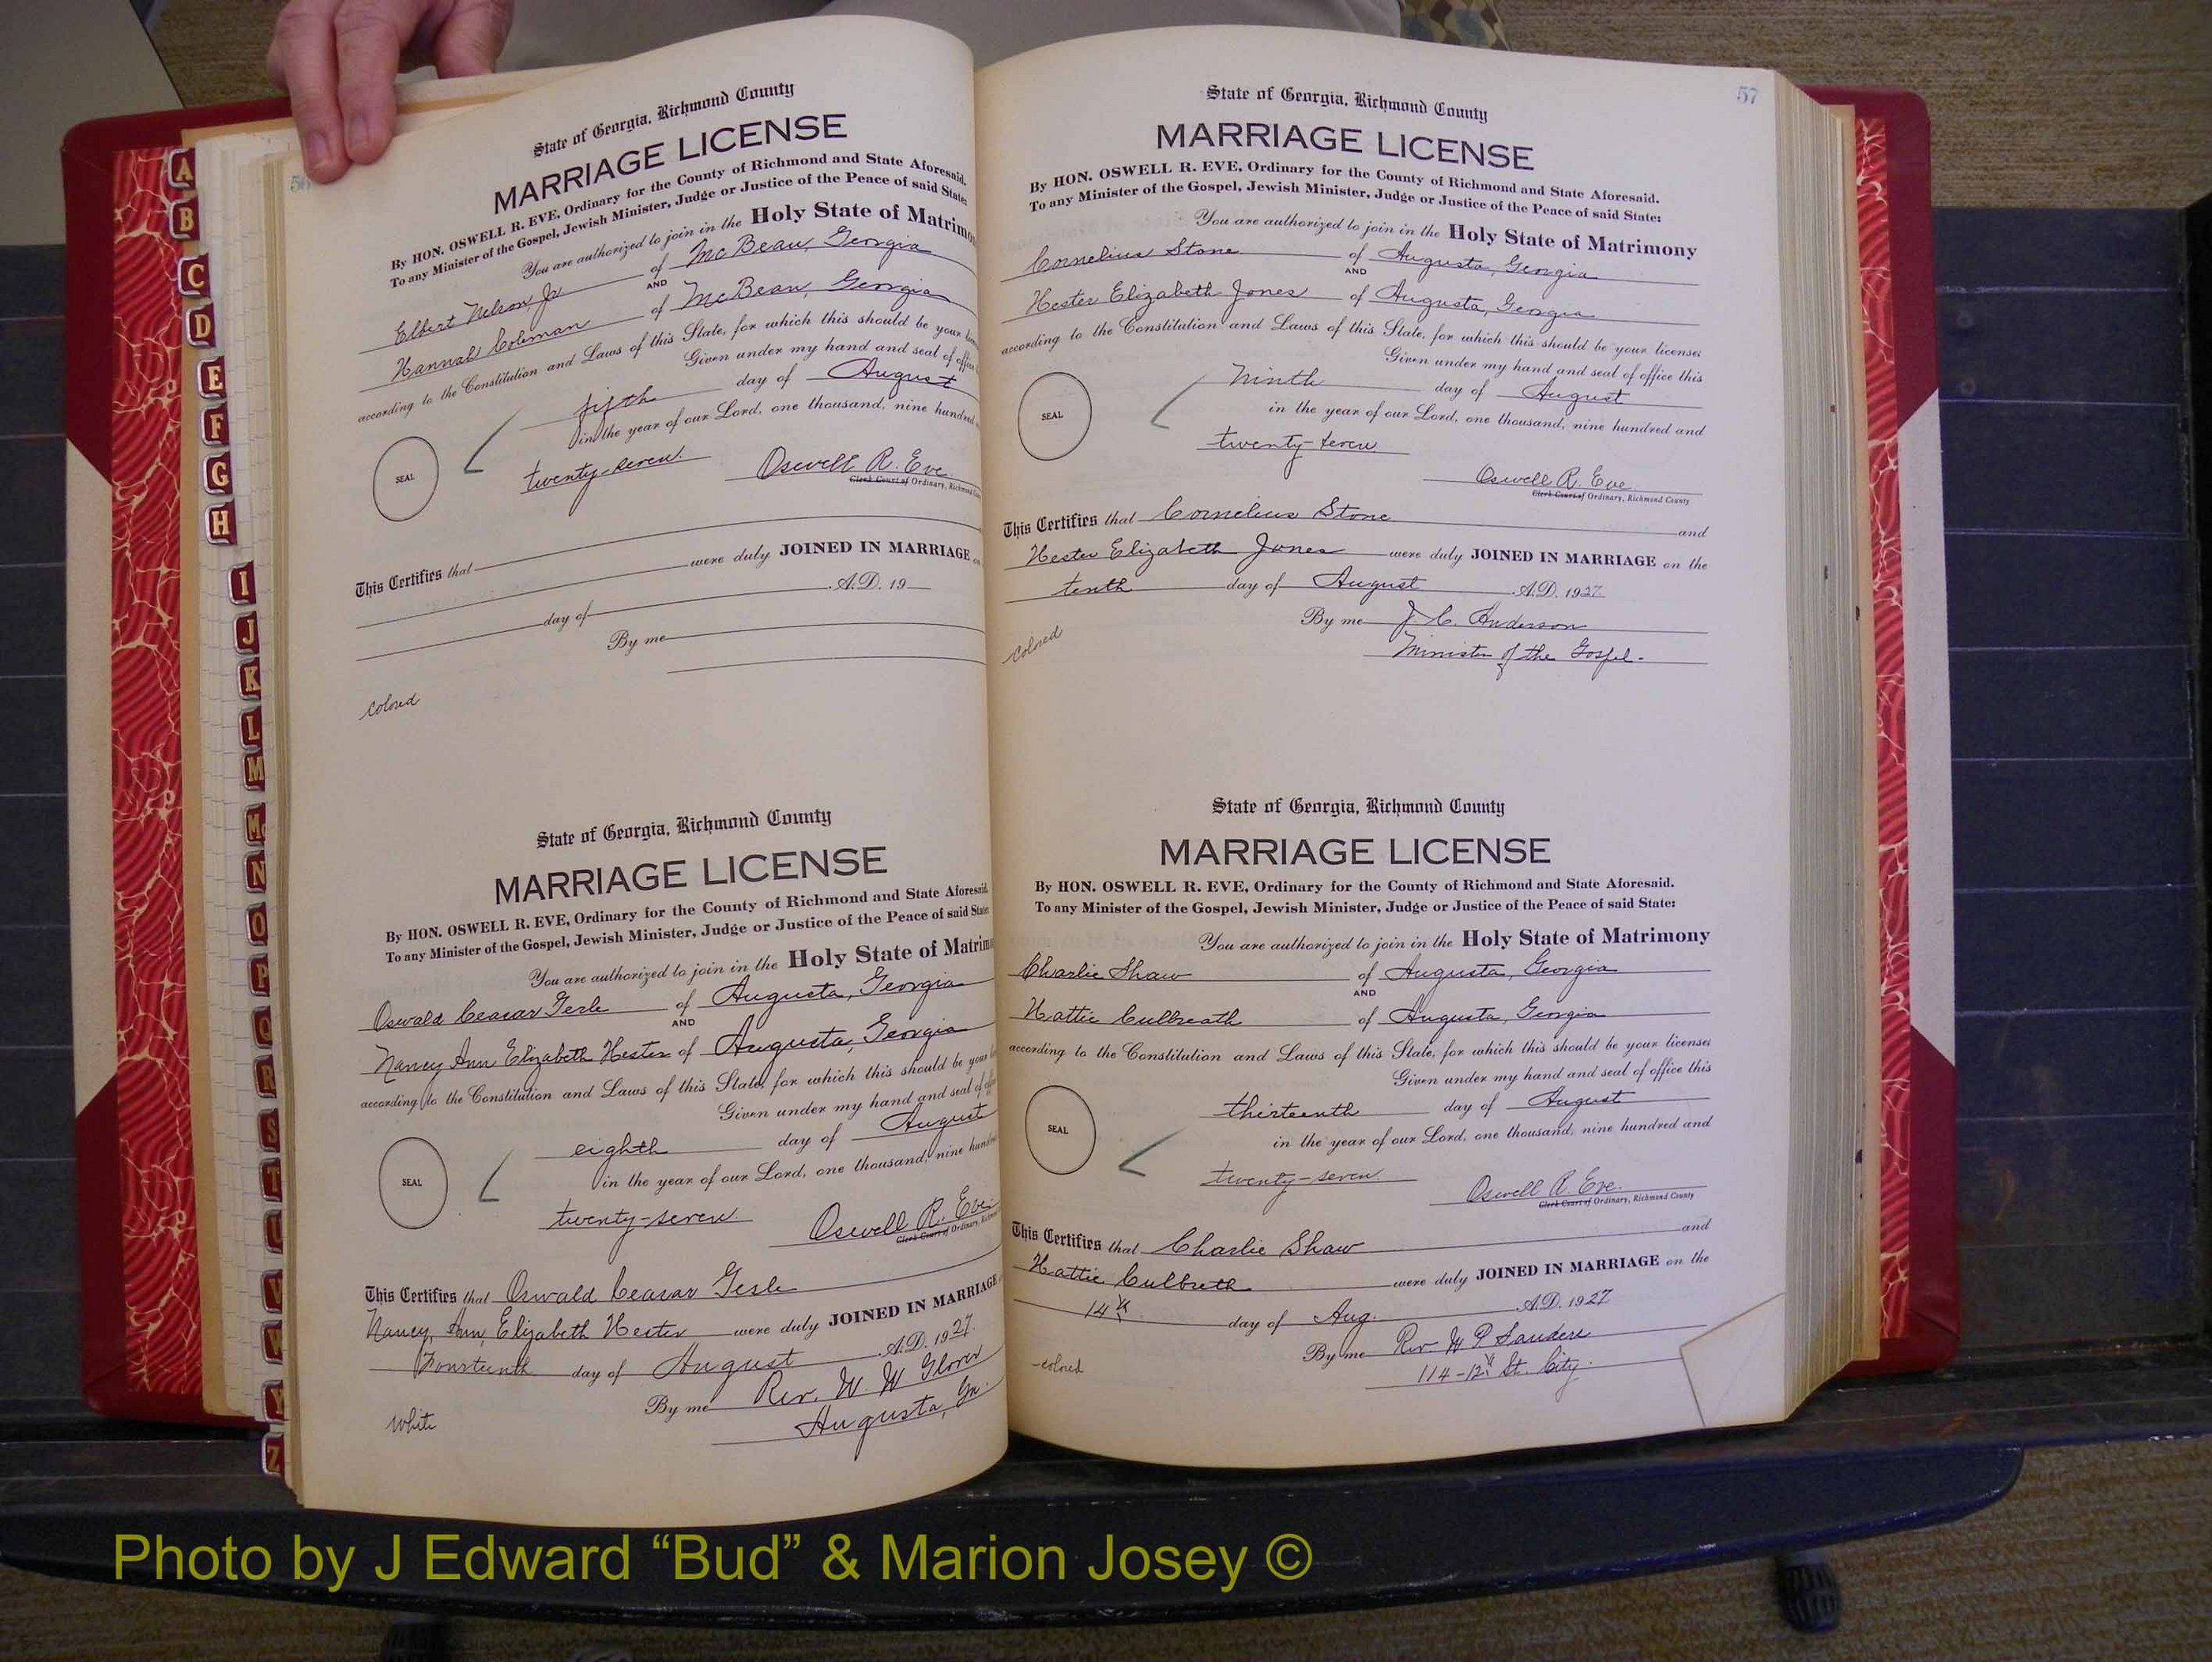 A
B
C
D
E
F
G
H
I
J
K
L
M
Mc
N
O
P
Q
R
S
T
U
V
W
Y
Z
State of Georgia, Richmond County
MARRIAGE LICENSE
By HON. OSWELL R. EVE, Ordinary for the County of Richmond and State Aforesaid.
To any Minister of the Gospel, Jewish Minister, Judge or Justice of the Peace of said State:
You are authorized to join in the Holy State of Matrimo
Elbert Nelson, Jr. of McBean, Georgia
AND
Hannah Coleman of McBean, Georgia
according to the Constitution and Laws of this State, for which this should be your
Given under my hand and seal of office
fifth day of August
in the year of our Lord, one thousand, nine hundred
SEAL
twenty-seven.
Oswell R. Eve
Clerk Court of Ordinary, Richmond
This Certifies that
were duly JOINED IN MARRIAGE
day of A.D. 19
By me
colored
State of Georgia, Richmond County
MARRIAGE LICENSE
By HON. OSWELL R. EVE, Ordinary for the County of Richmond and State Aforesaid.
To any Minister of the Gospel, Jewish Minister, Judge or Justice of the Peace of said State:
You are authorized to join in the Holy State of Matrim
Oswald Ceasar of Augusta, Georgia
AND
Nancy Ann Elizabeth Hester of Augusta, Georgia
according to the Constitution and Laws of this State, for which this should be your
Given under my hand and seal of
eighth day of August
in the year of our Lord, one thousand, nine hundred
SEAL
twenty-seven
Oswell R. Eve
Clerk Court of Ordinary,
This Certifies that Oswald Ceasar
Nancy, Ann, Elizabeth Hester were duly JOINED IN MARRIAGE
Fourteenth day of August A.D. 1927.
By me Rev. W. W Glover
Augusta, Ga.
White
57
State of Georgia, Richmond County
MARRIAGE LICENSE
By HON. OSWELL R. EVE, Ordinary for the County of Richmond and State Aforesaid.
To any Minister of the Gospel, Jewish Minister, Judge or Justice of the Peace of said State:
You are authorized to join in the Holy State of Matrimony
Cornelius Stone of Augusta, Georgia
AND
Hester Elizabeth Jones of Augusta, Georgia
according to the Constitution and Laws of this State, for which this should be your license:
Given under my hand and seal of office this
Ninth day of August
SEAL
in the year of our Lord, one thousand, nine hundred and
twenty-seven
Oswell R. Eve
Clerk Court of Ordinary, Richmond County
This Certifies that Cornelius Stone and
Hester Elizabeth Jones were duly JOINED IN MARRIAGE on the
tenth day of August A.D. 1927
By me J. C. Anderson
Minister of the Gospel.
Colored
State of Georgia, Richmond County
MARRIAGE LICENSE
By HON. OSWELL R. EVE, Ordinary for the County of Richmond and State Aforesaid.
To any Minister of the Gospel, Jewish Minister, Judge or Justice of the Peace of said State:
You are authorized to join in the Holy State of Matrimony
Charlie Shaw of Augusta, Georgia
AND
Hattie Culbreath of Augusta, Georgia
according to the Constitution and Laws of this State, for which this should be your license:
Given under my hand and seal of office this
thirteenth day of August
SEAL
in the year of our Lord, one thousand, nine hundred and
twenty-seven
Oswell R. Eve.
Clerk Court of Ordinary, Richmond County
This Certifies that Charlie Shaw and
Hattie Culbreth were duly JOINED IN MARRIAGE on the
14th day of Aug. A.D. 1927
By me Rev. W P Sanders
114-12th St. City.
colored
Photo by J Edward “Bud” & Marion Josey ©